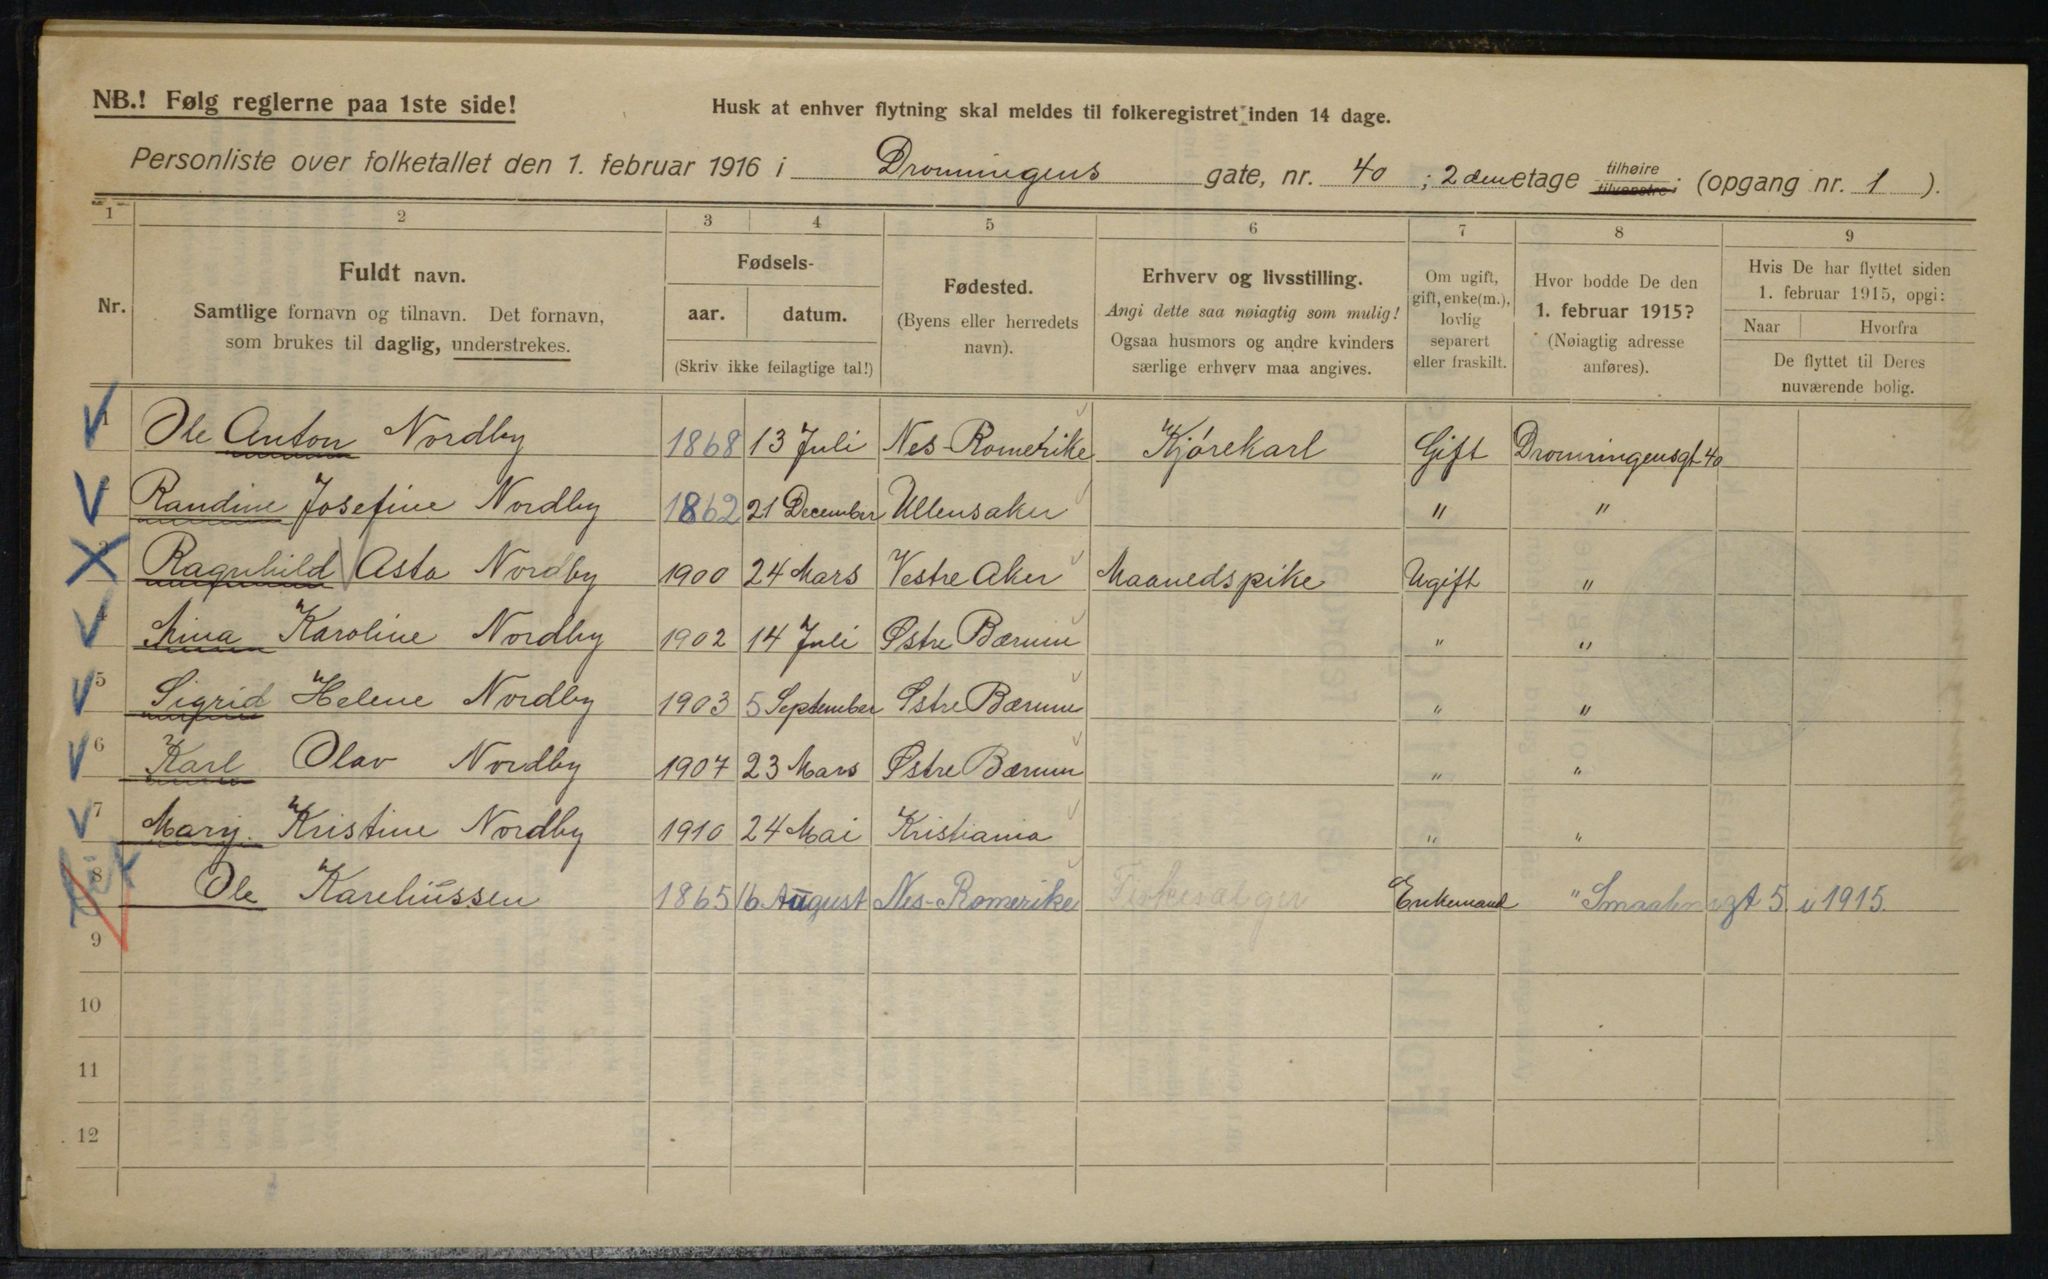 NB.! Følg reglerne paa 1ste side!
Husk at enhver flytning skal meldes til folkeregistret inden 14 dage.
Personliste over folketallet den 1. februar 1916 i Dronningens gate, nr. 40 ; 2den etage tilhøire tilvenstre ; (opgang nr. 1 ).
1 2 3 4 5 6 7 8 9
Nr.
Fuldt navn.
Samtlige fornavn og tilnavn. Det fornavn,
som brukes til daglig, understrekes.
Fødsels-
aar. datum.
(Skriv ikke feilagtige tal!)
Fødested.
(Byens eller herredets
navn).
Erhverv og livsstilling.
Angi dette saa nøiagtig som mulig!
Ogsaa husmors og andre kvinders
særlige erhverv maa angives.
Om ugift,
gift, enke(m.),
lovlig
separert
eller fraskilt.
Hvor bodde De den
1. februar 1915?
(Nøiagtig adresse
anføres).
Hvis De har flyttet siden
1. februar 1915, opgi:
Naar Hvorfra
De flyttet til Deres
nuværende bolig.
1 Ole Anton Nordby 1868 13 Juli Nes-Romerike Kjørekarl Gift Dronningensgt 40
Randine Josefine Nordby 1862 21 December Ullensaker " "
Ragnhild Asta Nordby 1900 24 Mars Vestre Aker Maanedspike Ugift "
Karoline Nordby 1902 14 Juli Østre Bærum " "
5 Sigrid Helene Nordby 1903 5 September Østre Bærum " "
6 Karl Olav Nordby 1907 23 Mars Østre Bærum " "
7 Mary Kristine Nordby 1910 24 Mai Kristiania " "
8 Ole Kareliussen 1865 16 August Nes-Romerike Enkemand " Smaalensgt 5. i 1915.
9
10
11
12